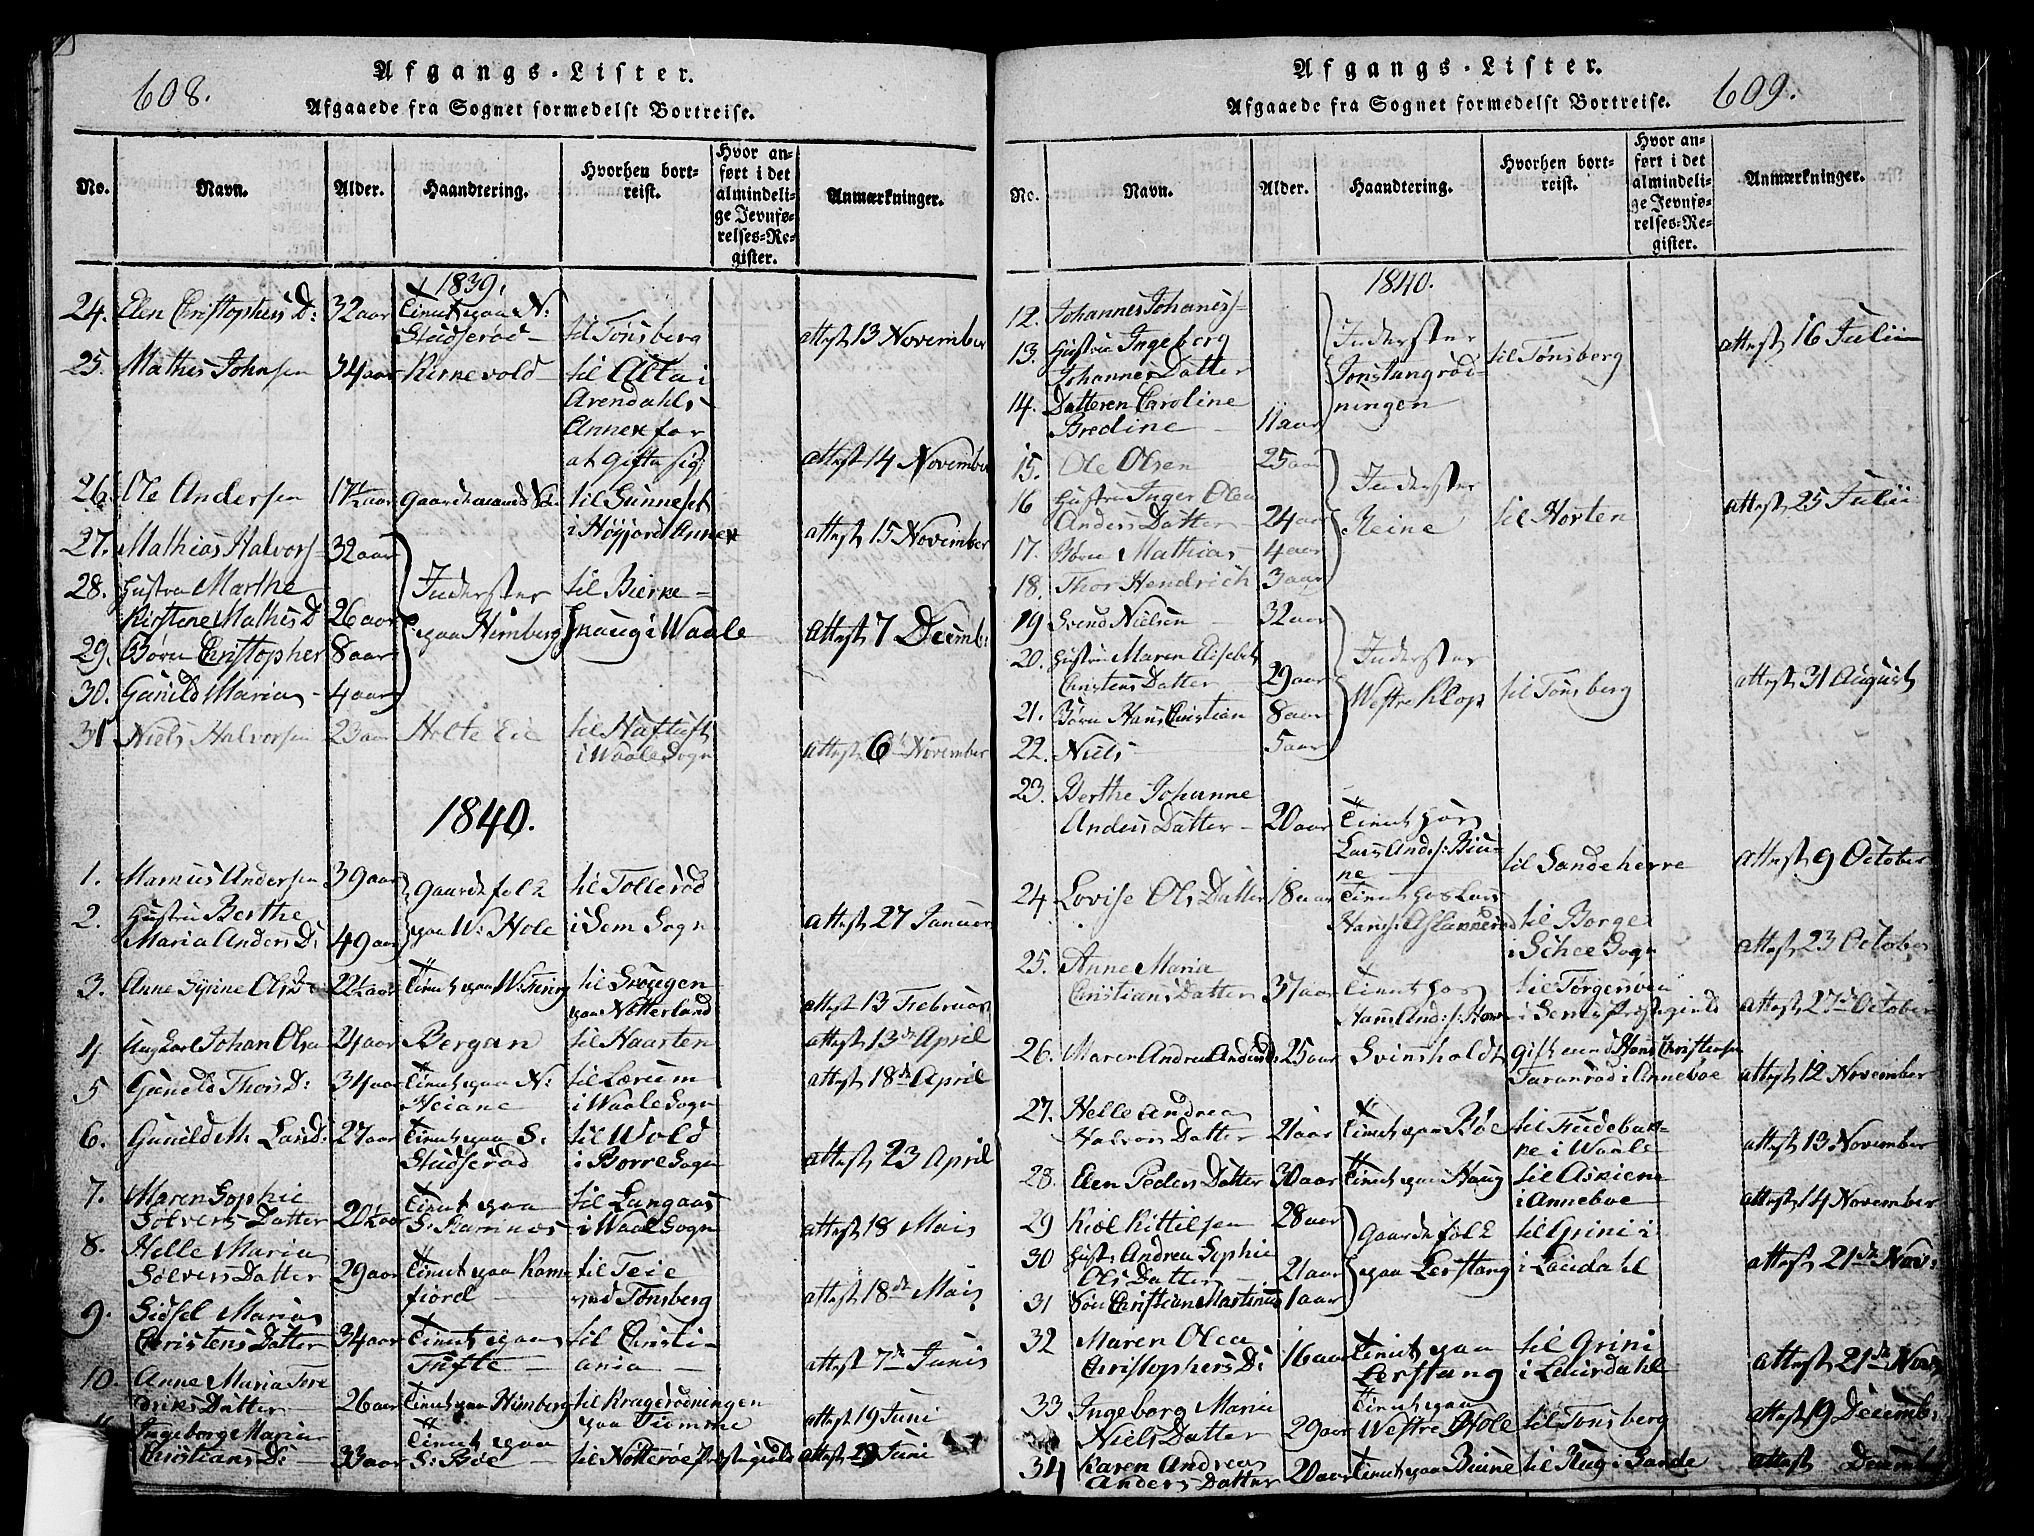 608.
Afgangs-Lister.
Afgaaede fra Sognet formedelst Bortreise.
No. Navn. Alder. Haandtering. Hvorhen bortreist. Hvor anført i det almindelige Jevnførelses-Register. Anmærkninger.
1839.
24. Elen Christophers D: 32 aar Tient paa N: Studserød til Tønsberg attest 13 November
25. Mathis Johnsen 34 aar Kirnevold til
Arendahls
Annex for
at gifte sig attest 14 November
26. Ole Andersen 17½ aar Gaardmands Søn til
i Høyjord Annex attest 15 November
27. Mathias Halvors- 32 aar
28. Hustru Marthe Inderster til Bierke-
Kirstene Mathis D 26 aar paa Himberg i Waale attest 7 Decemb:
29. Børn Christopher 8 aar
30. Gunild Maria 4 aar
31 Niels Halvorsen 23 aar Holte Eie til
i Waale Sogn attest 6 November
1840.
1. Marcus Andersen 39 aar Gaardfolk til Tollerød
2. Hustru Berthe paa W: Hole i Sem Sogn attest 27 Januar
Maria Anders D: 49 aar
3. Anne Syrine Ols D 22½ aar Tient paa til
paa Nøtterland attest 13 Februar
4 Johan Olsen 24 aar Bergan til Haarten attest 13de April
5 Gunild Thors D: 34 aar Tient paa N: til Lærum attest 18de April
Heiane i Waale Sogn
6. Gunild M. Lars D: 27 aar Tient paa S: til Wold
Studserød i Borre Sogn attest 23 April
7. Maren Sophie Tient paa til Langaas
Sølvers Datter 20½ aar S: Ramnes i Waale Sogn attest 18 Mais
8. Helle Maria
Sølvers Datter 29 aar Tient paa til Teie
ved Tønsberg attest 18de Mais
9. Sidsel Maria
Christens Datter 34 aar Tient paa til Christi-
Tufte ania attest 7de Junis
10. Anne Maria
Datter 26 aar Tient paa Himberg til Kragerødningen
paa attest 19 Juni
Ingeborg Maria Tient paa
Christians D: 33 aar S: Bøe til Nøtterøe Præstegield attest Juni
609.
Afgangs-Lister.
Afgaaede fra Sognet formedelst Bortreise.
No. Navn. Alder. Haandtering. Hvorhen bortreist. Hvor anført i det almindelige Jevnførelses-Register. Anmærkninger.
1840.
12. Johannes Johaness-
13. Hustru Ingeberg Inderster til Tønsberg attest 16 Julii
Johannes Datter
14. Datteren Caroline ningen
Bredine 11 aar
15. Ole Olsen 25 aar
16 Hustru Inger Olea Inderster
Anders Datter 24 aar Reine til Horten attest 25 Julii
17. Børn Mathias 4 aar
18. Thor Hendrich 3 aar
19 Svend Nielsen 32 aar
20. Hustru Maren Elisebeth Inderster
Christens Datter 29 aar Westre Klop til Tønsberg attest 31 August
21. Børn Hans Christian 8 aar
22. Niels 5 aar
23. Berthe Johanne
Anders Datter 20 aar Tient hos
Lars Anders: til Sandeherre attest 9 October
24 Lovise Ols Datter 18 aar Tient hos Lars
Hans: til Borge
i Schee Sogn attest 23 October
25. Anne Maria
Christians Datter 37 aar Tient hos til
Hans And: i Sems Præstegield attest 27de October
26. Maren Andrea Anders D 25 aar Svinsholdt gift med Hans Christensen
i Anneboe attest 12 November
27. Helle Andrea
Halvors Datter 21 aar Tient paa Bøe til Trudebak-
ke i Waale attest 13 November
28. Elen Peders Datter 30 aar Tient paa Haug til
i Anneboe attest 14 November
29 Kittilsen 28 aar Gaardfolk til Grini i
30 Hustr Andrea Sophie paa Lerstang attest 21de Nov:
Ols Datter 21 aar
31 Søn Christian Martinius 1 aar
32 Maren Olea Tient paa til Grini
Christophers D: 16 aar Lerstang i Lardahl attest 21de Nov:
33 Ingeborg Maria Tient paa
Niels Datter 29 aar Westre Hole til Tønsberg attest 9 Decemb:
34 Karen Andrea
Anders Datter 20 aar Tient paa til Haug i Sande attest Decemb